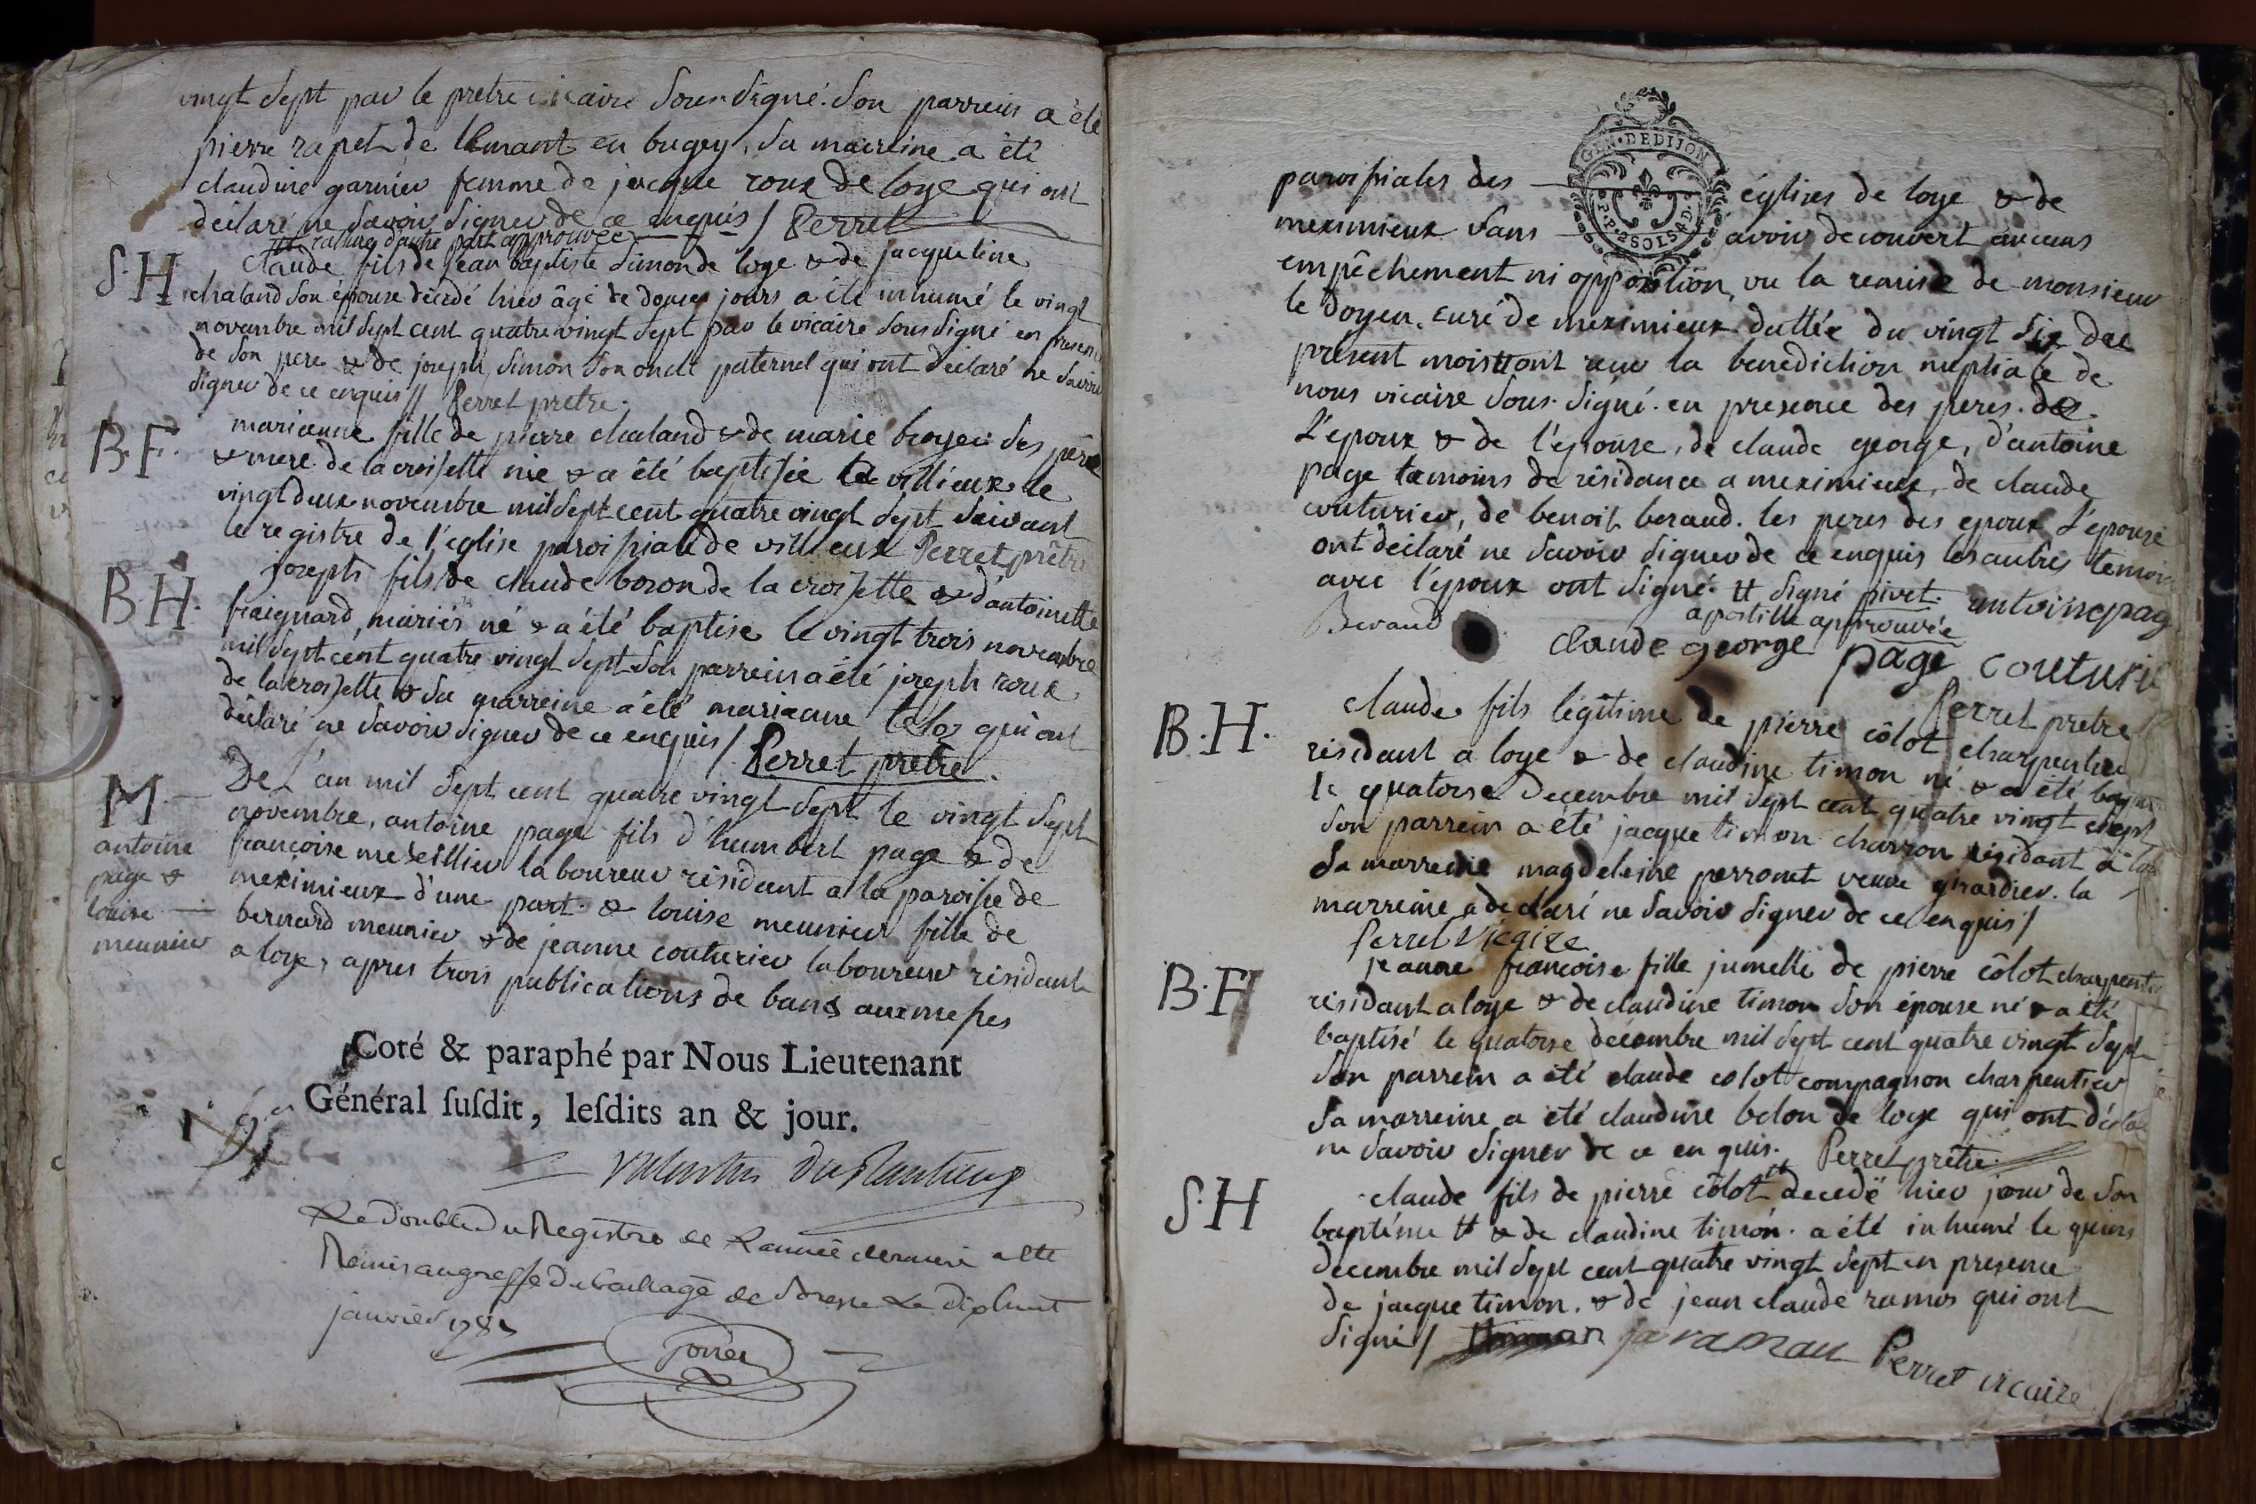 vingt sept par le pretre vicaire sous signé. son parrein a été
pierre rapet de lemant en bugey, sa marreine a été
claudine garnier femme de jacque roux de loye qui ont
déclaré ne savoir signer de ce enquis / Perret
rature d'autre part approuvée
S. H
claude fils de jean baptiste simon de loye & de jacqueline
chaland son épouse décédé hier âgé de douze jours a été inhumé le vingt
novembre mil sept cent quatre vingt sept par le vicaire sous signé en presence
de son pere & de joseph simon son oncle paternel qui ont déclaré ne savoir
signer de ce enquis // Perret pretre.
B. F.
marianne fille de pierre chaland & de marie broyer ses père
& mere de la croisette née & a été baptisée a villieux le
vingt deux novembre mil sept cent quatre vingt sept suivant
le registre de l'église paroissiale de villieux Perret prêtre
B. H.
joseph fils de claude boron de la croisette & d'antoinette
fraignard, mariés né & a été baptise le vingt trois novembre
mil sept cent quatre vingt sept son parrein a été joseph roux
de la croisette & sa marreine a été marianne qui ont
déclaré ne savoir signer de ce enquis / Perret pretre.
M
antoine
page &
louise
meunier
De l'an mil sept cent quatre vingt sept le vingt sept
novembre, antoine page fils d'humbert page & de
françoise laboureur résident a la paroisse de
meximieux d'une part. & louise meunier fille de
bernard meunier & de jeanne couturier laboureur résident
a loye, apres trois publications de bans aux messes
Coté & paraphé par Nous Lieutenant
Général susdit, lesdits an & jour.
Le double du Registre de L'année derniere a été
Remis au greffe du bailliage de Bresse Le dix huit
janvier 178
paroissiales des églises de loye & de
meximieux sans avoir découvert aucuns
GEN. DE DIJON
empêchement ni opposition, vu la remise de monsieur
le doyen, curé de meximieux dattée du vingt six du
présent mois # ont reçu la benediction nuptiale de
nous vicaire sous. signé. en presence des peres. de
L'epoux & de l'épouse, de claude george, d'antoine
page temoins de résidance a meximieux, de claude
couturier, de benoit beraud. les peres des epoux & l'epouse
ont déclaré ne savoir signer de ce enquis les autres temoins
avec l'époux ont signé. # signé pivet. antoine pag
apostille approuvée
Beraud claude george page couturie
Perret pretre
B. H.
claude fils légitime de pierre côlot charpentier
résidant a loye & de claudine timon né & a été bap
le quatorse decembre mil sept cent quatre vingt sept
son parrein a été jacque timon charron résidant à
sa marreine magdeleine perronet veuve girardier. la
marreine a déclaré ne savoir signer de ce enquis /
Perret Vicaire
B. F
jeanne francoise fille jumelle de pierre côlot charpentier
résidant a loye & de claudine timon son épouse né & a été
baptisé le quatorse décembre mil sept cent quatre vingt sept
son parrein a été claude colot compagnon charpentier
sa marreine a été claudine belon de loye qui ont décla
ne savoir signer de ce en quis. Perret prêtre.
S. H
claude fils de pierre côlot # decedé hier jour de son
baptême # & de claudine timon. a été inhumé le quinse
decembre mil sept cent quatre vingt sept en presence
de jacque timon, & de jean claude ramos qui ont
signé / Perret vicaire